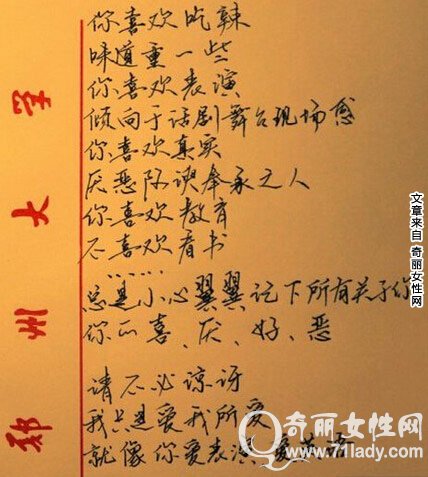 郑州大学
你喜欢吃辣
味道重一些
你喜欢表演
倾向于话剧舞台现场感
你喜欢真实
厌恶阿谀奉承之人
你喜欢教育
不喜欢看书
……
总是小心翼翼记下所有关于你
你的喜、厌、好、恶
请不必惊讶
我只是爱我所爱
就像你爱表演,爱
文章来自 奇丽女性网
奇丽女性网
www.71lady.com